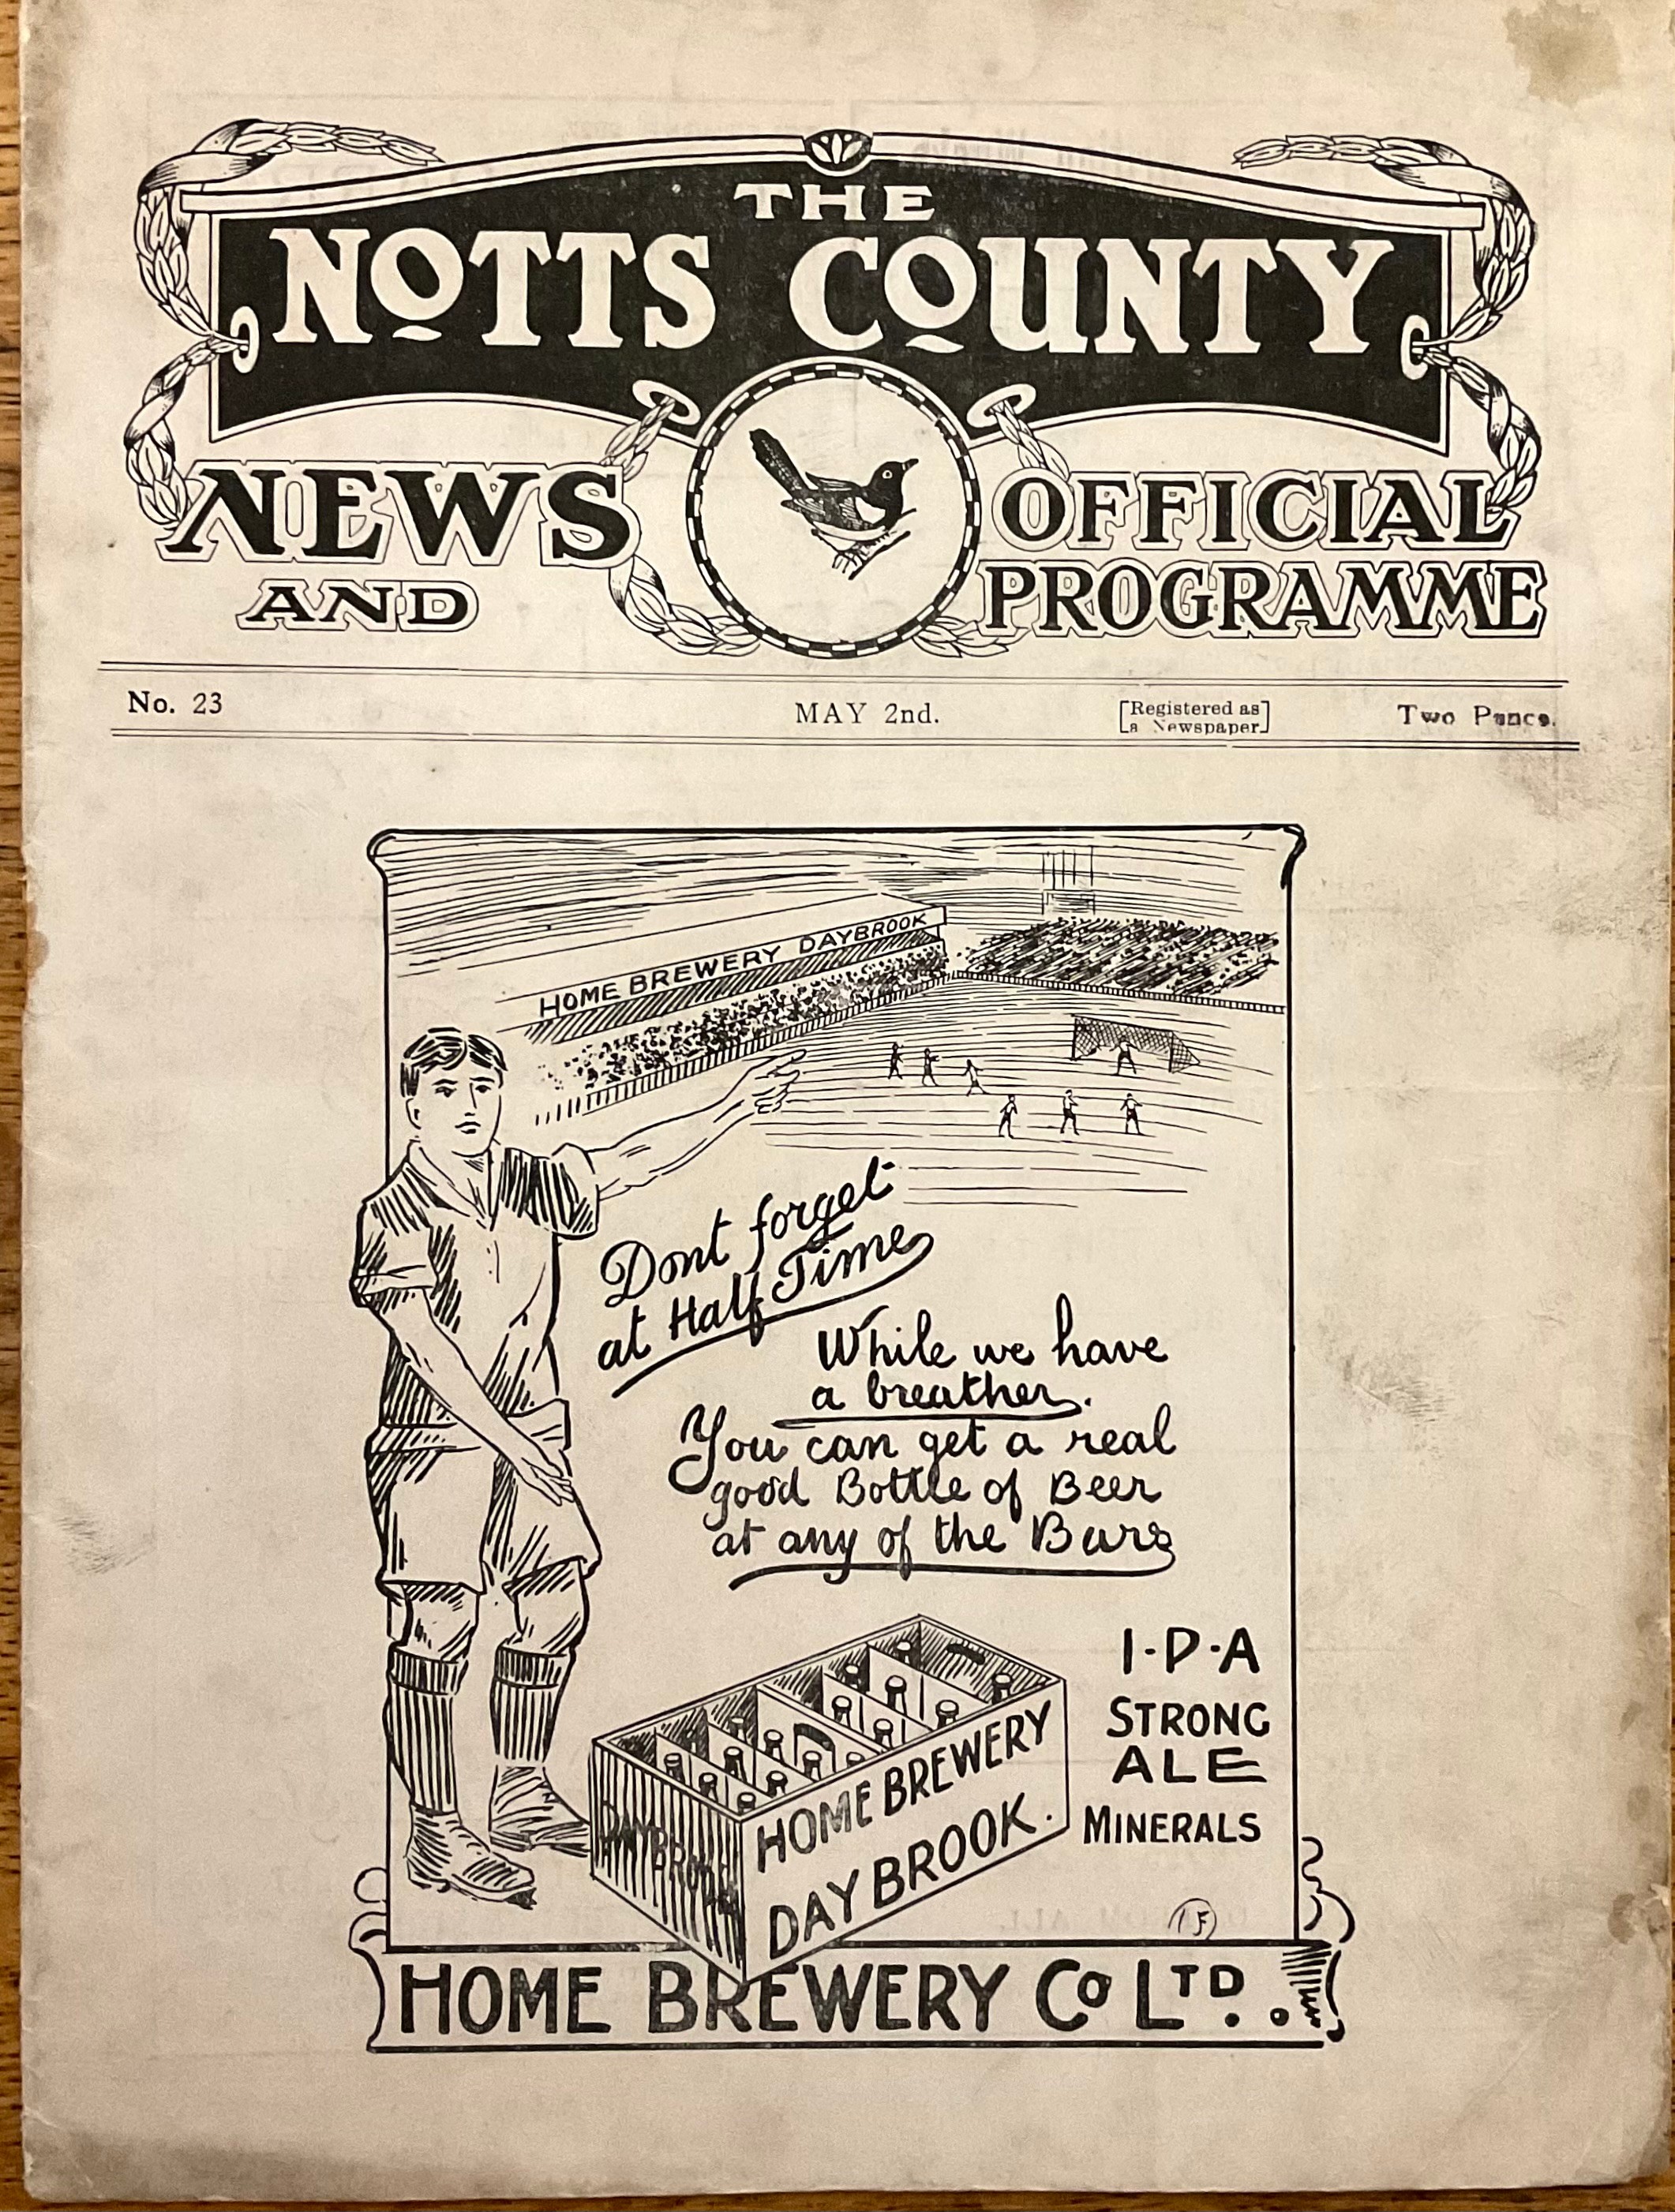 THE
NOTTS COUNTY
NEWS
AND
OFFICIAL
PROGRAMME
No. 23
MAY 2nd.
[Registered as
a Newspaper]
Two Pence.
HOME BREWERY DAYBROOK
Dont forget
at Half Time
While we have
a breather.
You can get a real
good Bottle of Beer
at any of the Bars
I·P·A
STRONG
ALE
MINERALS
HOME BREWERY
DAYBROOK.
DAYBROOK
HOME BREWERY Co LTD.